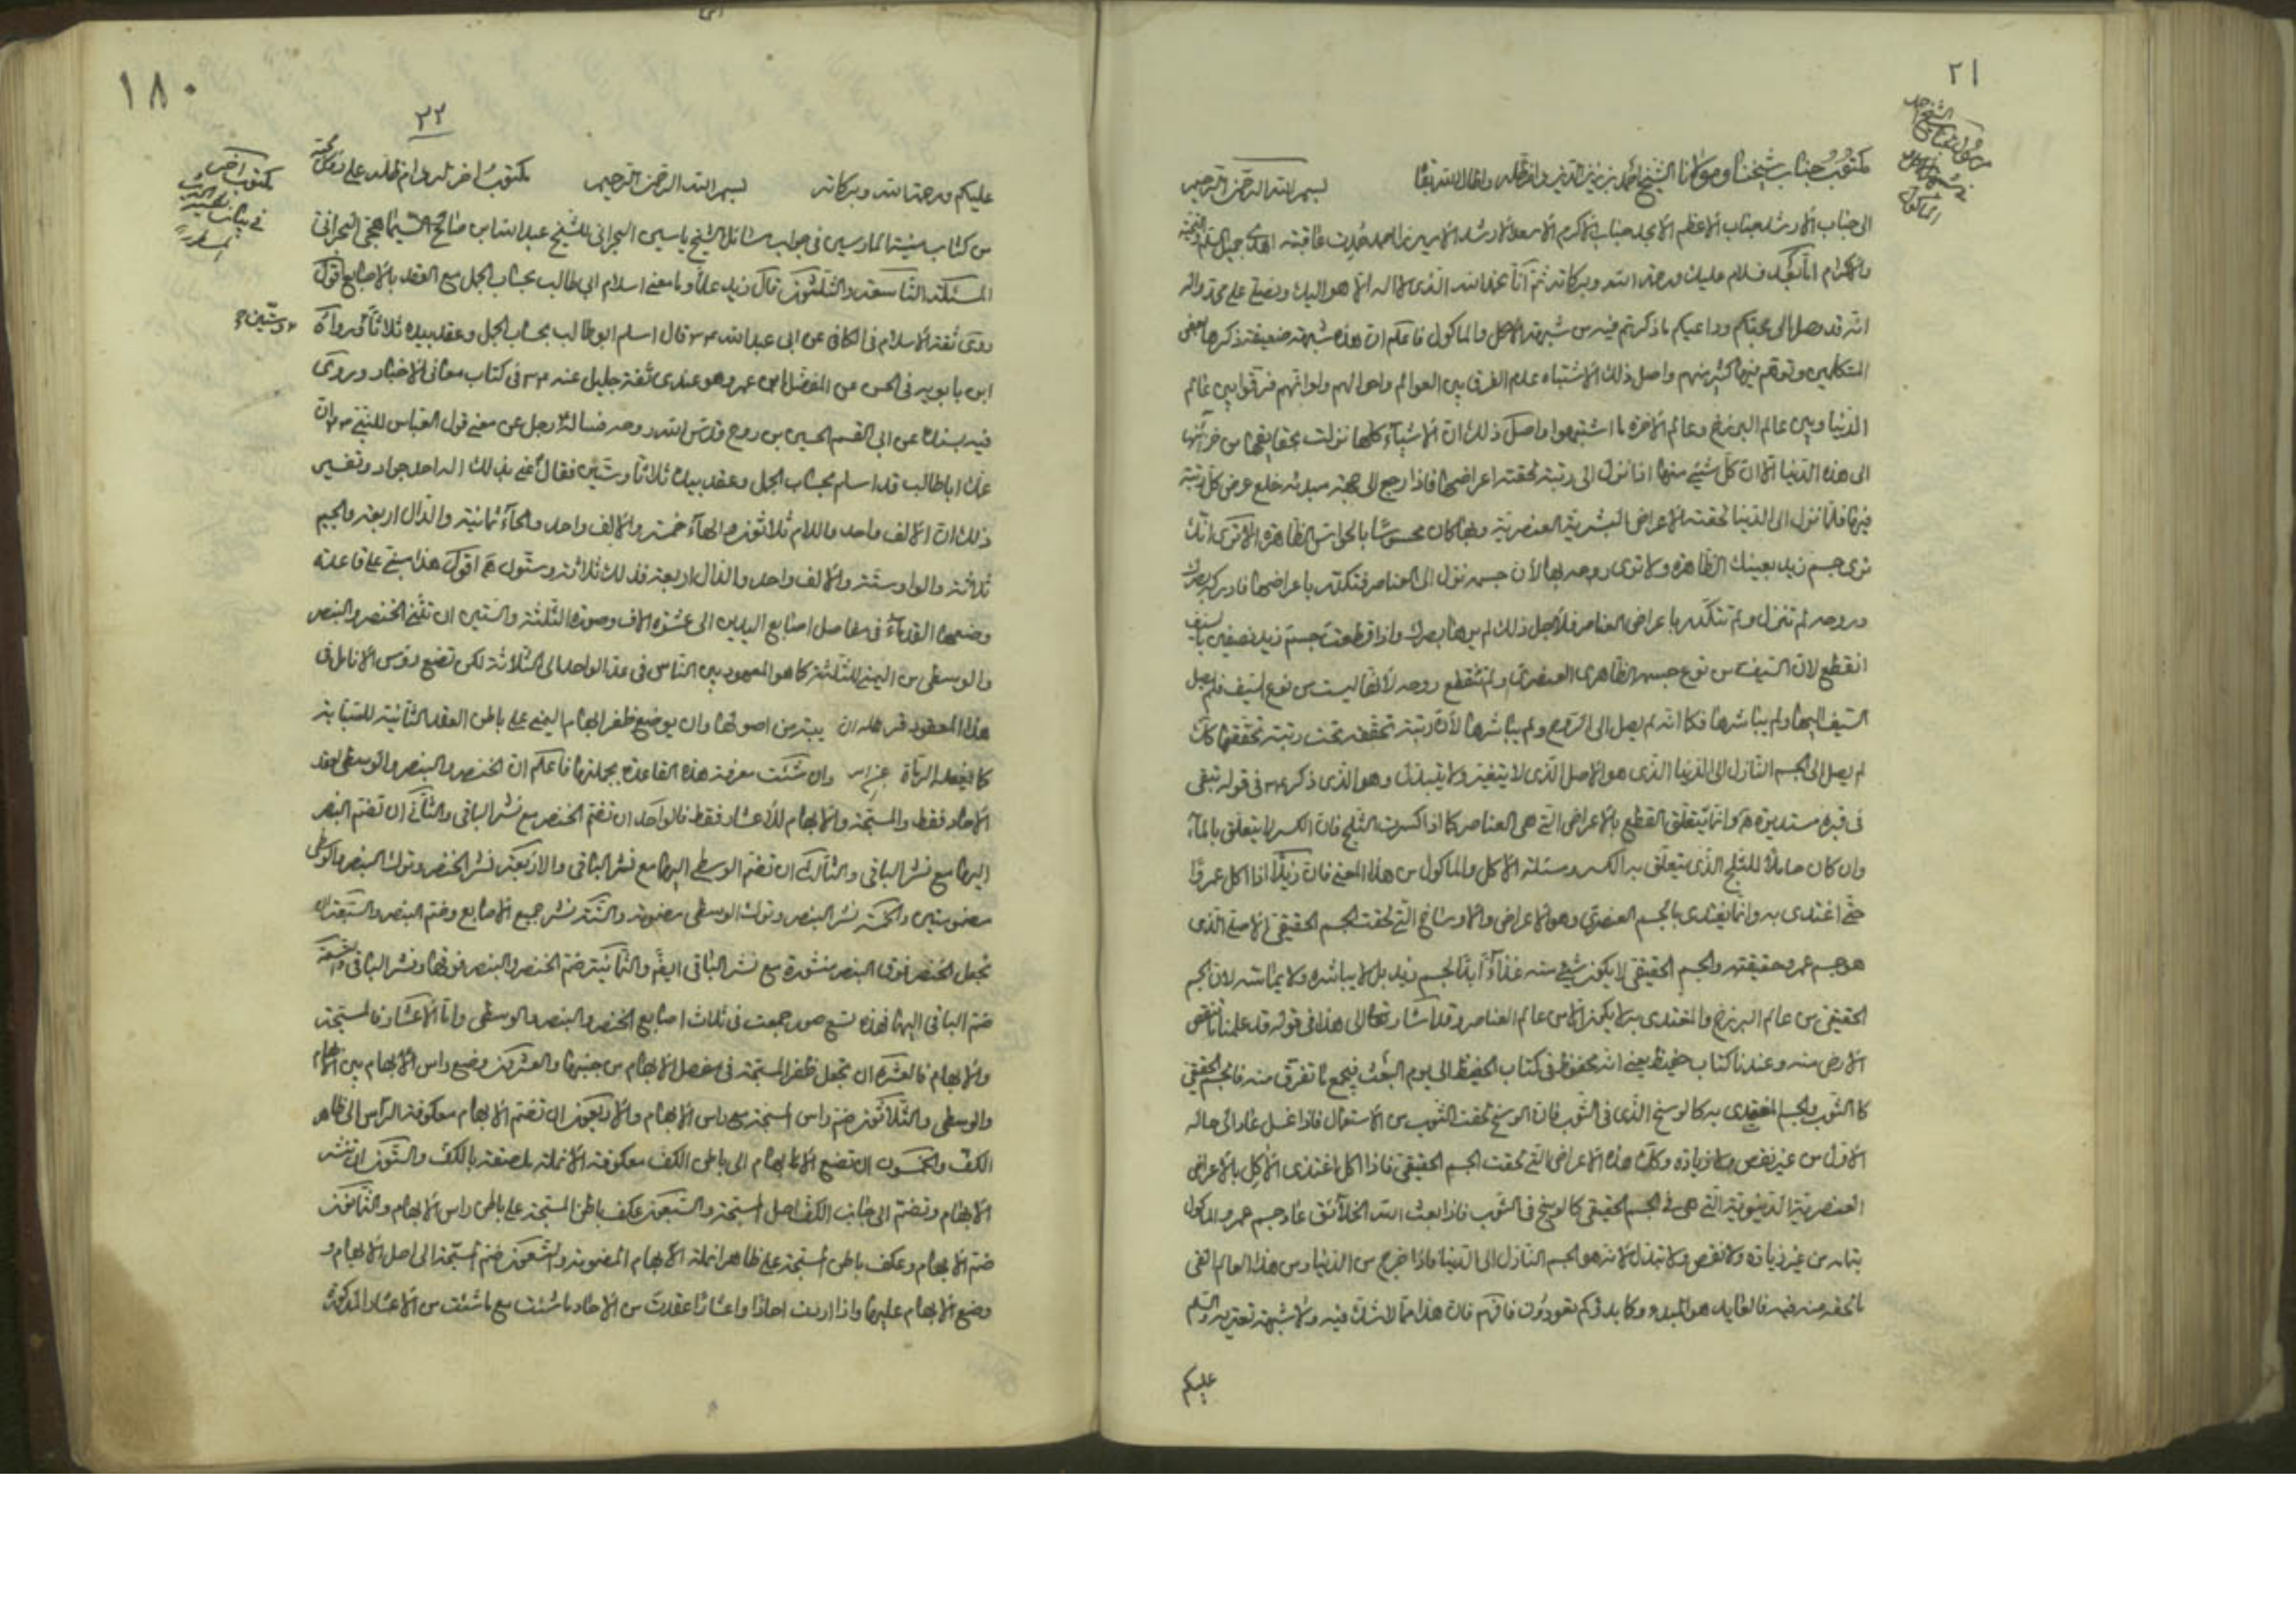 ٢١
مكتوب جناب شيخنا ومولانا الشيخ احمد بن زين الدين دام ظله واطال الله بقا بسم الله الرحمن الرحيم
الى جناب الارشد جناب الاعظم الامجد جناب الاكرم الاسعد الارشد الامير احمد عاقبته اهدى جميل السلام والتحية
والاكرام اما بعد فسلام عليك ورحمة الله وبركاته ثم انا نحمد الله الذي لا اله الا هو اليك ونصلي على محمد واله
انه قد وصل الى محبكم وداعيكم ما ذكرتم فيه من شبهة الآكل والماكول فاعلم ان هذه شبهة ضعيفة ذكرها بعض
المتكلمين وتوهم فيها كثير منهم واصل ذلك الاشتباه عدم الفرق بين العوالم واحوالهم ولو انهم فرقوا بين عالم
الدنيا وبين عالم البرزخ وعالم الاخرة ما اشتبهوا واصل ذلك ان الاشياء كلها نزلت بحقايقها من خزائنها
الى هذه الدنيا الا ان كل شيئ منها اذا نزل الى رتبة لحقته اعراضها فاذا رجع الى جهة مبدئه خلع عرض كل رتبة
فيها فلما نزل الى الدنيا لحقته الاعراض البشرية العنصرية وبها كان محسوسًا بالحواس الظاهرة الا ترى انك
ترى جسم زيد بعينك الظاهرة ولا ترى روحه بها لان جسمه نزل الى العناصر فتكدر باعراضها فادركه بصرك
وروحه لم تنزل ولم تتكدر باعراض العناصر فلاجل ذلك لم يرها بصرك واذا قطعت جسم زيد نصفين بالسيف
انقطع لان السيف من نوع جسمه الظاهرى العنصرى ولم تنقطع روحه لانها ليست من نوع السيف فلم يصل
السيف اليها ولم يباشرها فكما انه لم يصل الى الروح ولم يباشرها لان رتبة تحققه تحت رتبة تحققها كذلك
لم يصل الى الجسم النازل الى الدنيا الذى هو الاصل الذى لا يتغير ولا يتبدل وهو الذى ذكره في قوله تبقى
فى قبره مستديرة وانما يتعلق القطع بالاعراض التى هى العناصر كما اذا كسرت الثلج فان الكسر لا يتعلق بالماء
وان كان حاملًا للثلج الذى يتعلق به الكسر ومسئلة الآكل والماكول من هذا المعنى فان زيدًا اذا اكل عمروًا
حتى اغتذى به وانما يغتذى بالجسم العنصري وهو الاعراض والاوساخ التى لحقت الجسم الحقيقى الاصلى الذى
هو جسم عمرو حقيقته والجسم الحقيقى لا يكون شيئ منه غذاءً ابدًا لجسم زيد بل لا يباشره ولا يماسه لان الجسم
الحقيقى من عالم البرزخ والمغتذى به لا يكون الا من عالم العناصر وقد اشار تعالى الى هذا فى قوله قد علمنا ما تنقص
الارض منهم وعندنا كتاب حفيظ يعنى انه محفوظ فى كتاب الحفيظ الى يوم البعث فيجمع ما تفرق منه فالجسم الحقيقى
كالثوب والجسم المغتذى به كالوسخ الذى فى الثوب فان الوسخ لحقت الثوب من الاستعمال فاذا غسل عاد الى حاله
الاول من غير نقص ولا زيادة وكذلك هذه الاعراض التى لحقت الجسم الحقيقى فاذا اكل اغتذى الآكل بالاعراض
العنصرية الدنيوية التى هى فى الجسم الحقيقى كالوسخ فى الثوب فاذا بعث الله الخلائق عاد جسم عمرو الماكول
بتمامه من غير زيادة ولا نقص ولا تبدل لانه هو الجسم النازل الى الدنيا فاذا خرج من الدنيا ومن هذا العالم القى
ما لحقه منه فيه فالعايد هو المبدء وكما بدئكم تعودون فافهم فان هذا مما لا شك فيه ولا شبهة تعتريه والسلام
عليكم
١٨٠
٢٢
عليكم ورحمة الله وبركاته بسم الله الرحمن الرحيم مكتوب اخر له دام ظله على
من كتاب شيخنا فى جواب مسائل الشيخ ياسين البحرانى للشيخ عبد الله ابن صالح السماهيجى البحرانى
المسئلة التاسعة والثلثون قال زيد علاه وما معنى اسلام ابي طالب بحساب الجمل مع العقد بالاصابع اقول
روى ثقة الاسلام فى الكافى عن ابى عبد الله قال اسلم ابو طالب بحساب الجمل وعقد بيده ثلاثًا ورواه
وستين
ابن بابويه فى الحسن عن المفضل ابن عمر وهو عندى ثقة جليل عنه فى كتاب معانى الاخبار وروى
فيه بسنده عن ابى القسم الحسين بن روح قدس الله روحه فساله رجل عن معنى قول العباس للنبى ان
عمك ابا طالب قد اسلم بحساب الجمل وعقد بيده ثلاثًا وستين فقال عنى بذلك اله احد جواد وتفسير
ذلك ان الالف واحد واللام ثلاثون والهاء خمسة والالف واحد والحاء ثمانية والدال اربعة والجيم
ثلاثة والواو ستة والالف واحد والدال اربعة فذلك ثلاثة وستون اقول هذا مبنى على قاعدة
وضعها القدماء فى مفاصل اصابع اليدين الى عشرة الاف وصورة الثلثة والستين ان تثنى الخنصر والبنصر
والوسطى من اليمنى للثلثة كما هو المعهود بين الناس فى عد الواحد الى الثلاثة لكن تضع رؤس الانامل فى
هذا المعقود قريبة من اصولها وان يوضع ظفر ابهام اليمنى على باطن العقدة الثانية للسبابة
كما يفعله الرماة وان شئت معرفة هذه القاعدة بجملتها فاعلم ان الخنصر والبنصر والوسطى لعقد
الاحاد فقط والمسبحة والابهام للاعشار فقط فالواحد ان تضم الخنصر مع نشر الباقى والثانى ان تضم البنصر
اليها مع نشر الباقى والثالث ان تضم الوسطى اليها مع نشر الباقى والاربعة نشر الخنصر وترك البنصر والوسطى
مضمومتين والخمسة نشر البنصر وترك الوسطى مضمومة والستة نشر جميع الاصابع وضم البنصر والسبعة ان
تجعل الخنصر فوق البنصر منشورة مع نشر الباقى ايضًا والثمانية ضم الخنصر والبنصر فوقها ونشر الباقى والتسعة
ضم الباقى اليها فهذه تسع صور جمعت فى ثلاث اصابع الخنصر والبنصر والوسطى واما الاعشار فالمسبحة
والابهام فالعشرة ان تجعل ظفر المسبحة فى مفصل الابهام من جنبها والعشرون وضع راس الابهام بين
والوسطى والثلاثون ضم راس المسبحة مع راس الابهام والاربعون ان تضم الابهام معكوفة الراس الى ظاهر
الكف والخمسون ان تضع الابهام الى باطن الكف معكوفة الانملة ملصقة بالكف والستون ان تنشر
الابهام وتضم الى جانب الكف اصل المسبحة والسبعون عكف باطن المسبحة على باطن راس الابهام والثمانون
ضم الابهام وعكف باطن المسبحة على ظاهر انملة الابهام المضمومة والتسعون ضم المسبحة الى اصل الابهام و
وضع الابهام عليها واذا اردت احادًا واعشارًا عقدت من الاحاد ما شئت مع ما شئت من الاعشار المذكورة